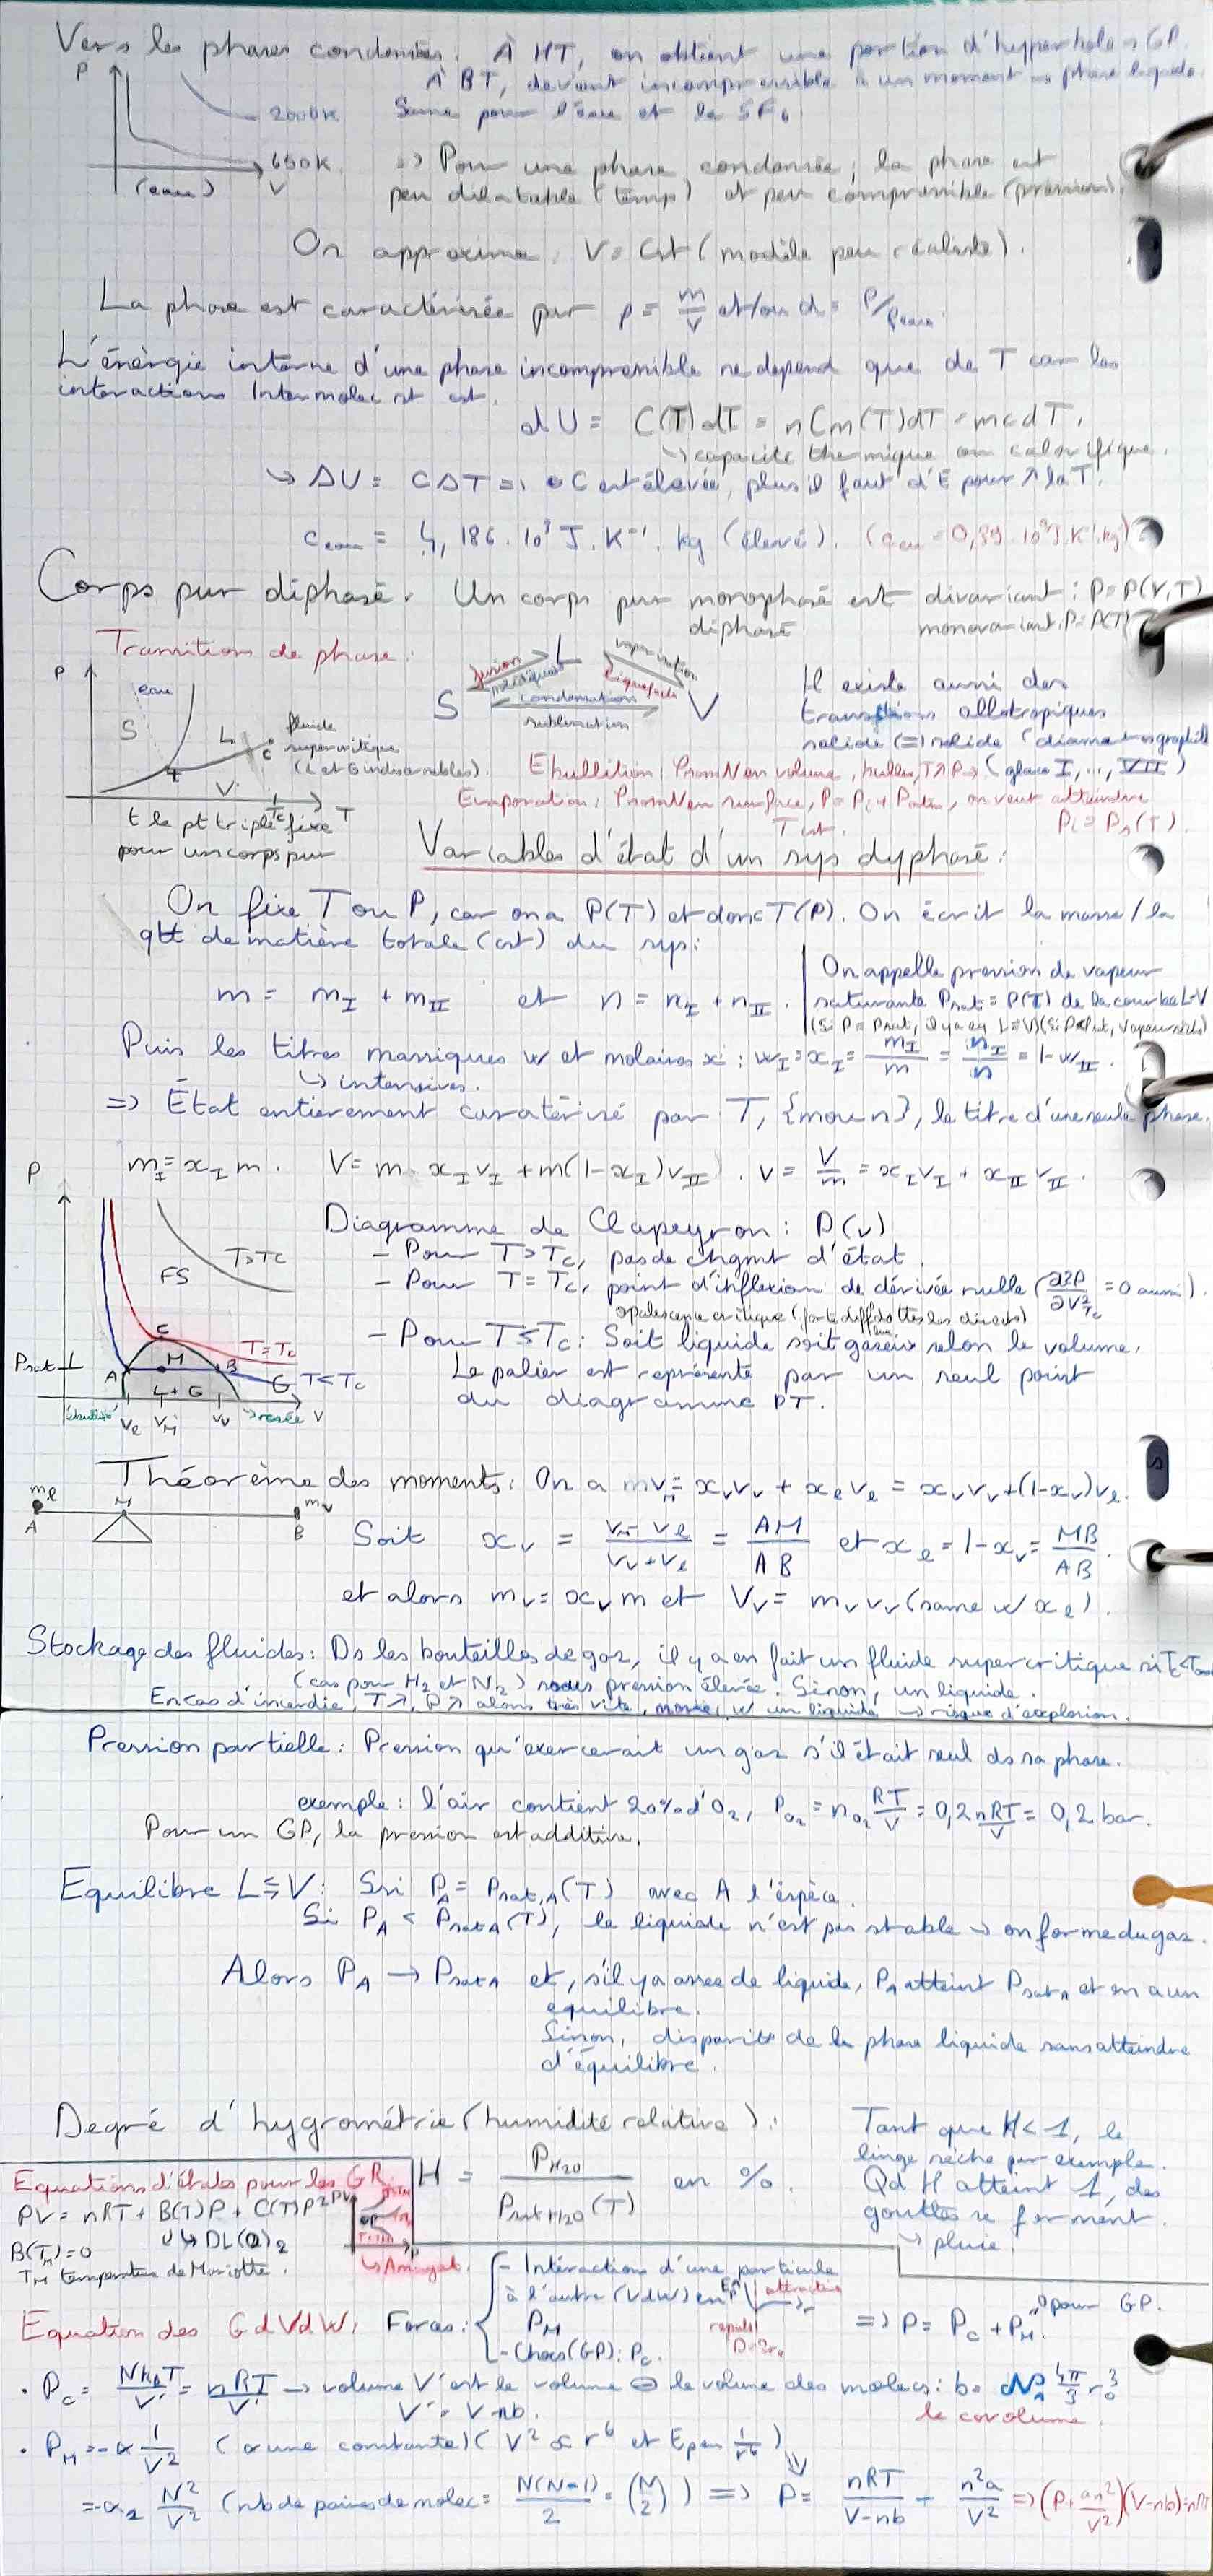 Vers les phases condensées. À HT, on obtient une portion d'hyperbole → GP.
À BT, devient incompressible à un moment → phase liquide.
Same pour l'eau et le SF6
P
2000K
650K
V
(eau)
=> Pour une phase condensée, la phase est
peu dilatable (temp) et peu compressible (pression).
On approxime V = Cst (modèle peu réaliste).
La phase est caractérisée par ρ = m/V et/ou d = ρ/ρeau
L'énergie interne d'une phase incompressible ne dépend que de T car les
interactions Intermolec st cst.
dU = C(T)dT = nCm(T)dT = mcdT.
↳ capacité thermique ou calorifique.
↳ ΔU = CΔT => C est élevée, plus il faut d'E pour ↗ la T.
ceau = 4,186.10³ J.K⁻¹.kg (élevé).
Corps pur diphasé. Un corps pur monophasé est divariant : P = P(V,T)
diphasé monovariant : P = P(T)
Transition de phase :
P
eau
S
L
C
V
T
Tc
fluide
supercritique
(L et G indiscernables)
S
fusion
solidification
L
vaporisation
liquéfaction
condensation
sublimation
V
Il existe aussi des
transitions allotropiques
solide (=) solide (diamant → graphite)
(glace I, ..., VII)
Ebullition : PhomN en volume, bulles, T↗
Evaporation : PhomN en surface, P = Pi + Pautres, on veut atteindre
Pi = Ps(T).
T cst.
t le pt triple fixe
pour un corps pur
Variables d'état d'un sys dyphasé :
On fixe T ou P, car on a P(T) et donc T(P). On écrit la masse / la
qtt de matière totale (cst) du sys :
m = mI + mII et n = nI + nII.
On appelle pression de vapeur
saturante Psat = P(T) de la courbe L-V
(Si P = Psat, il y a eq L⇌V) (Si P<Psat, vapeur sèche)
Puis les titres massiques w et molaires x : wI = xI = mI/m = nI/n = 1 - wII.
↳ intensives.
=> État entièrement caractérisé par T, {m ou n}, le titre d'une seule phase.
mI = xI m. V = m xI vI + m(1-xI) vII. v = V/m = xI vI + xII vII.
P
Diagramme de Clapeyron : P(v)
- Pour T > Tc, pas de chgmt d'état
- Pour T = Tc, point d'inflexion de dérivée nulle (∂²P/∂V² Tc = 0 aussi).
opalescence critique (forte diff° ds ttes les directs)
- Pour T ≤ Tc : Soit liquide soit gazeux selon le volume,
Le palier est représenté par un seul point
du diagramme PT.
T>Tc
FS
C
T = Tc
Psat
L
A
M
B
G
T<Tc
L + G
ébullit°
vl
vM
vv
→ rosée
V
Théorème des moments : On a mvM = xv vv + xl vl = xv vv + (1-xv) vl.
ml
A
M
mv
B
Soit xv = (vM - vl)/(vv + vl) = AM/AB et xl = 1 - xv = MB/AB.
et alors mv = xv m et Vv = mv vv (same w/ xl).
Stockage des fluides : Ds les bouteilles de gaz, il y a en fait un fluide supercritique si
(cas pour H2 et N2) sous pression élevée. Sinon, un liquide.
En cas d'incendie, T↗, P↗ alors très vite, w/ un liquide → risque d'explosion.
Pression partielle : Pression qu'exercerait un gaz s'il était seul ds sa phase.
exemple : l'air contient 20% d'O2, PO2 = nO2 RT/V = 0,2 nRT/V = 0,2 bar.
Pour un GP, la pression est additive.
Equilibre L⇌V : Ssi PA = Psat,A(T) avec A l'espèce.
Si PA < PsatA(T), le liquide n'est pas stable → on forme du gaz.
Alors PA → PsatA et, s'il y a assez de liquide, PA atteint PsatA et on a un
equilibre.
Sinon, disparit° de la phase liquide sans atteindre
d'équilibre.
Degré d'hygrométrie (humidité relative) :
H = PH2O/PsatH2O(T) en %.
Tant que H<1, le
linge sèche par exemple.
Qd H atteint 1, des
gouttes se forment.
↳ pluie
Equations d'états pour les GR.
PV = nRT + B(T)P + C(T)P²
↳ DL(0)2
B(TM) = 0
TM température de Mariotte.
PV
GP
P
↳ Amagat.
Equation des GdVdW : Forces :
- Intéractions d'une particule
à l'autre (VdW) en
PM
- Chocs (GP) : Pc.
Ep
attractive
r
=> P = Pc + PM.
0 pour GP.
• Pc = NkbT/V' = nRT/V' → volume V' est le volume ⊖ le volume des molecs : b = NA 4π/3 r0³
V' = V - nb.
le covolume.
• PM = -α 1/V² (α une constante) (V² ∝ r⁶ et Ep en 1/r⁶)
= -α2 N²/V² (nb de paires de molec = N(N-1)/2 = (N 2)) => P = nRT/(V-nb) - n²a/V² => (P + an²/V²)(V-nb) = nRT